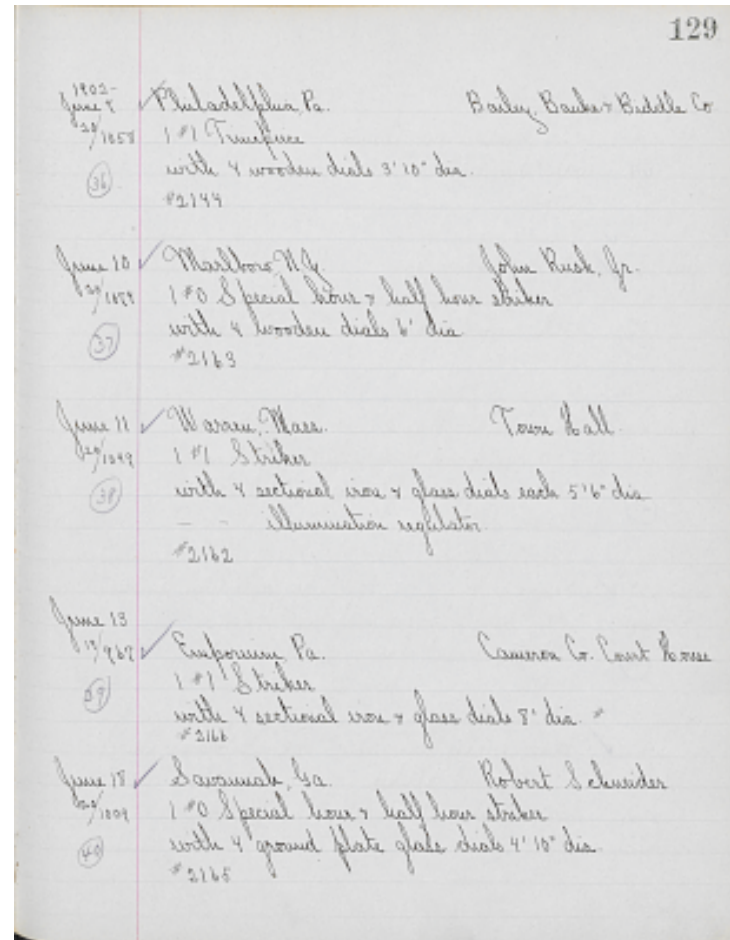 129
1902-
June 7 Philadelphia, Pa. Bailey, Banks & Biddle Co
20/1058 1 #1 Timepiece
36 with 4 wooden dials 3' 10" dia.
#2144
June 10 Marlboro, N.Y. John Rusk, Jr.
20/ 1 #0 Special hour & half hour striker
37 with 4 wooden dials 6' dia
#2163
June 11 Warren, Mass. Town Hall
20/1049 1 #1 Striker
38 with 4 sectional iron & glass dials each 5'6" dia
- - illumination regulator
#2162
June 13
19/967 Emporium, Pa. Cameron Co. Court House
39 1 #1 Striker
with 4 sectional iron & glass dials 8' dia. "
#2166
June 18 Savannah, Ga. Robert Schneider
20/1009 1 #0 Special hour & half hour striker
40 with 4 ground plate glass dials 4' 10" dia.
#2165